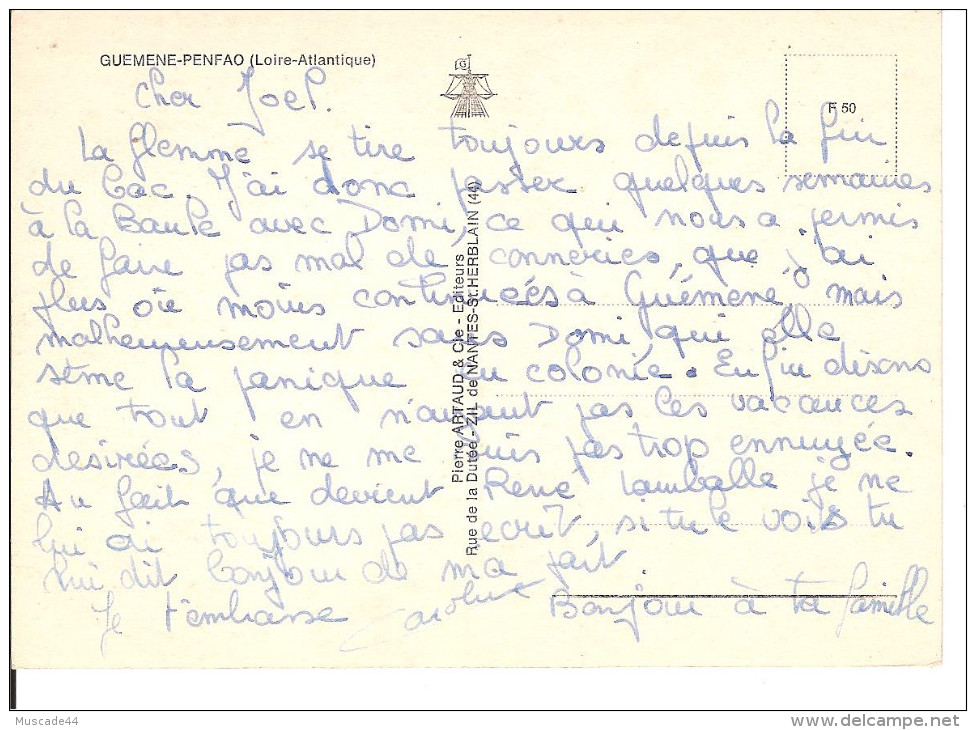 GUEMENE-PENFAO (Loire-Atlantique)
G
F 50
Cher Joel.
La flemme se tire toujours depuis la fin
du bac. J'ai donc passer quelques semaines
à la Baule avec Domi, ce qui nous a permis
de faire pas mal de conneries, que j'ai
plus où moins continuées à Guémené, mais
malheureusement sans Domi qui elle
sème la panique en colonie. Enfin disons
que tout en n'ayant pas les vacances
desirées, je ne me suis pas trop ennuyée.
Au fait que devient René Lamballe je ne
lui ai toujours pas ecrit, si tu le vois tu
lui dit bonjour de ma part
Je t'embrasse Caroline Bonjour à ta famille
Pierre ARTAUD & Cie - Editeurs
Rue de la Dutée - Z.I.L de NANTES-St.HERBLAIN (44)
Muscade44
delcampe.net